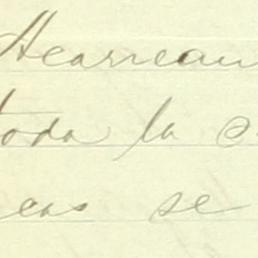 Acarrean
toda la c
cas se